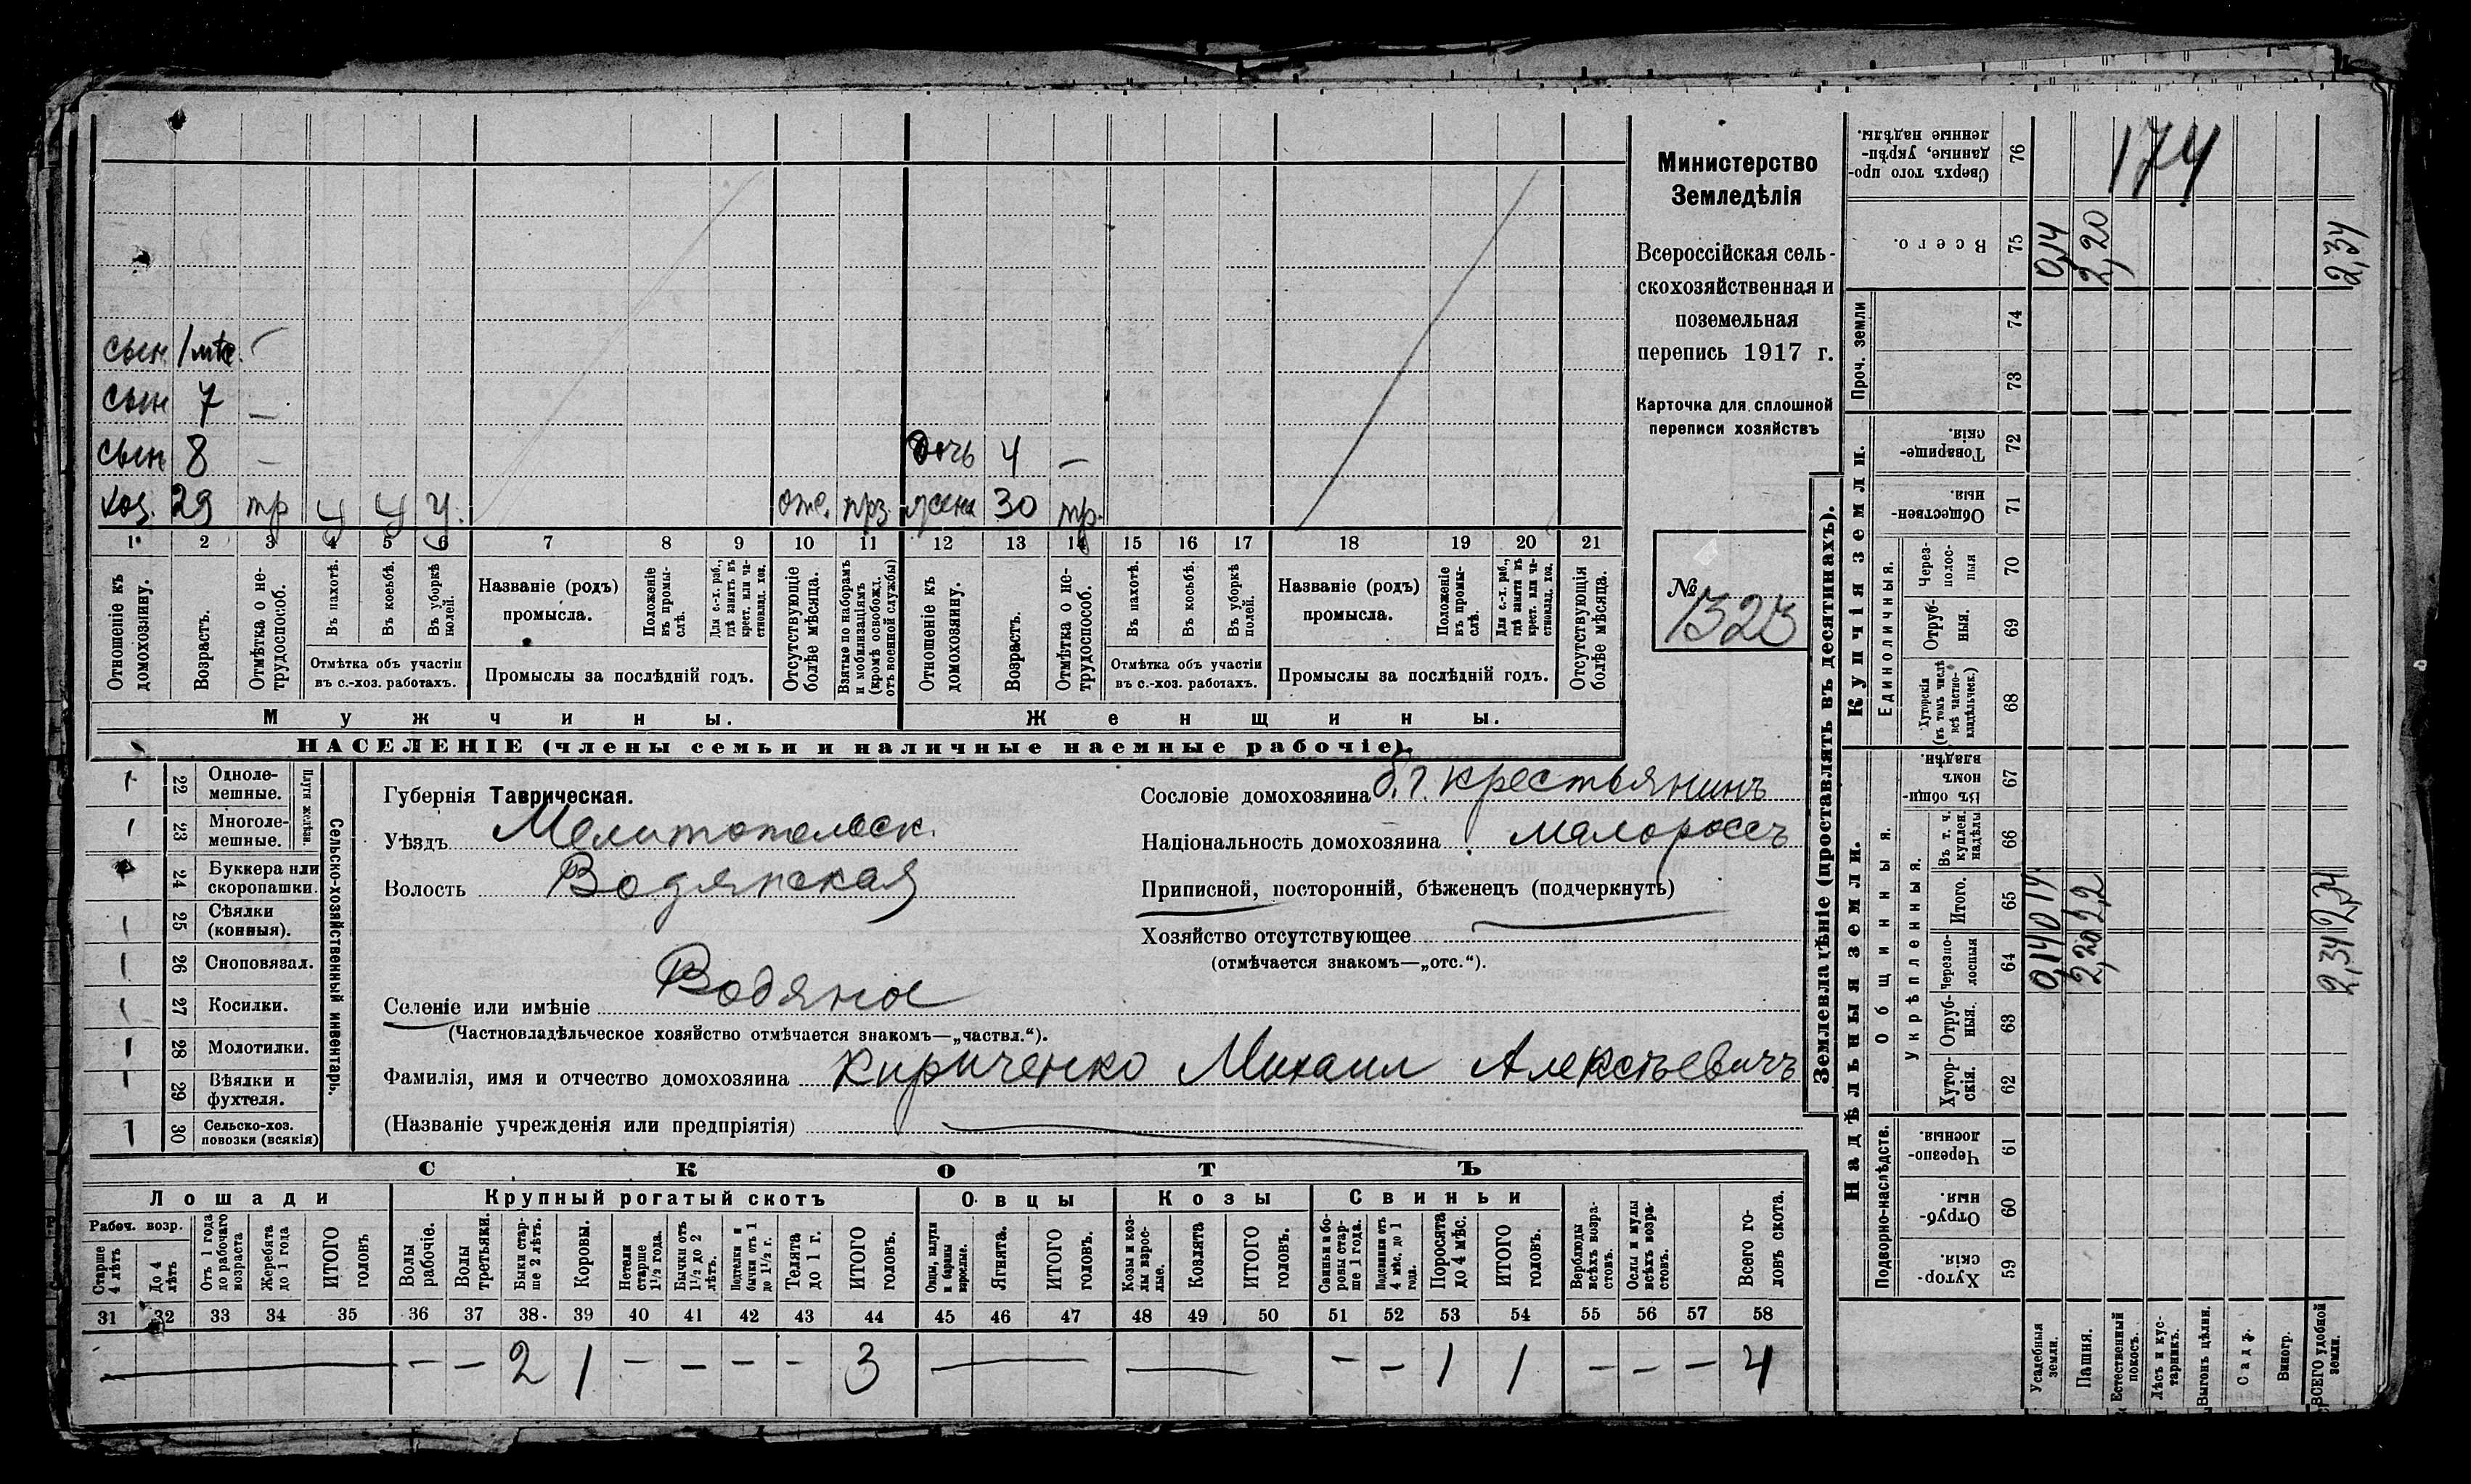 Министерство
Земледѣлія
Всероссійская сель-
скохозяйственная и
поземельная
перепись 1917 г.
Карточка для сплошной
переписи хозяйствъ
№
1323
сын 1 мѣс. —
сын 7 —
сын 8 — дочь 4 —
хоз. 29 тр у у у. отс. прз. жена 30 тр.
1 2 3 4 5 6 7 8 9 10 11 12 13 14 15 16 17 18 19 20 21
Отношеніе къ домохозяину.
Возрастъ.
Отмѣтка о не-трудоспособ.
Въ пахотѣ.
Въ косьбѣ.
Въ уборкѣ полей.
Отмѣтка объ участіи въ с.-хоз. работахъ.
Названіе (родъ) промысла.
Положеніе въ промы-слѣ.
Для с.-х. раб., гдѣ занятъ въ крест. или ча-стновлад. хоз.
Промыслы за послѣдній годъ.
Отсутствующіе болѣе мѣсяца.
Взятые по наборамъ и мобилизаціямъ (кромѣ освобожд. отъ военной службы)
Отношеніе къ домохозяину.
Возрастъ.
Отмѣтка о не-трудоспособ.
Въ пахотѣ.
Въ косьбѣ.
Въ уборкѣ полей.
Отмѣтка объ участіи въ с.-хоз. работахъ.
Названіе (родъ) промысла.
Положеніе въ промы-слѣ.
Для с.-х. раб., гдѣ занята въ крест. или ча-стновлад. хоз.
Промыслы за послѣдній годъ.
Отсутствующія болѣе мѣсяца.
Мужчины. Женщины.
НАСЕЛЕНІЕ (члены семьи и наличные наемные рабочіе).
22 Одноле-мешные.
23 Многоле-мешные.
Плуги желѣзн.
24 Буккера или скоропашки.
25 Сѣялки (конныя).
26 Сноповязал.
27 Косилки.
28 Молотилки.
29 Вѣялки и фухтеля.
1 30 Сельско-хоз. повозки (всякія)
Сельско-хозяйственный инвентарь.
Губернія Таврическая.
Уѣздъ Мелитопольск.
Волость Водянская
Селеніе или имѣніе Водяное
(Частновладѣльческое хозяйство отмѣчается знакомъ—„частвл.“).
Фамилія, имя и отчество домохозяина Кириченко Михаил Алексѣевичъ
(Названіе учрежденія или предпріятія)
Сословіе домохозяина б. г. крестьянинъ
Національность домохозяина малороссъ
Приписной, посторонній, бѣженецъ (подчеркнуть)
Хозяйство отсутствующее
(отмѣчается знакомъ—„отс.“).
СКОТЪ
Лошади Крупный рогатый скотъ Овцы Козы Свиньи
Рабоч. возр.
Старше 4 лѣтъ
До 4 лѣтъ
Отъ 1 года до рабочаго возраста
Жеребята до 1 года
ИТОГО головъ
Волы рабочіе.
Волы третьяки.
Быки стар-ше 2 лѣтъ.
Коровы.
Нетели старше 1½ года.
Бычки отъ 1½ до 2 лѣтъ.
Подтелки и бычки отъ 1 до 1½ г.
Телята до 1 г.
ИТОГО головъ.
Овцы, валухи и бараны взрослые.
Ягнята.
ИТОГО головъ.
Козы и коз-лы взрос-лые.
Козлята
ИТОГО головъ.
Свиньи и бо-ровы стар-ше 1 года.
Подсвинки отъ 4 мѣс. до 1 года.
Поросята до 4 мѣс.
ИТОГО головъ.
Верблюды всѣхъ возра-стовъ.
Ослы и мулы всѣхъ возра-стовъ.
Всего го-ловъ скота.
31 32 33 34 35 36 37 38 39 40 41 42 43 44 45 46 47 48 49 50 51 52 53 54 55 56 57 58
— — — 2 1 — — — — 3 — — — — 1 1 — — — 4
Землевладѣніе (проставлять въ десятинахъ).
Надѣльныя земли. Купчія земли. Проч. земли
Подворно-наслѣдств.
Общинныя.
Укрѣпленныя.
Единоличныя.
Хутор-скія 59
Отруб-ныя. 60
Черезпо-лосныя. 61
Хутор-скія. 62
Отруб-ныя. 63
Черезпо-лосныя 64
Итого. 65
Въ т. ч. куплен. надѣлы 66
Въ общи-номъ владѣн. 67
Хуторскія (въ томъ числѣ всѣ частно-владѣльческ.) 68
Отруб-ныя. 69
Через-полос-ныя 70
Обществен-ныя. 71
Товарище-скія. 72
73
74
Всего. 75
Сверхъ того про-данные, укрѣп-ленные надѣлы. 76
174
Усадебныя земли. 0,14 0,14 0,14
Пашня. 2,20 2,2 2,20
Естественный покосъ.
Лѣсъ и кус-тарникъ.
Выгонъ цѣлин.
Садъ.
Виногр.
ВСЕГО удобной земли. 2,34 2,34 2,34